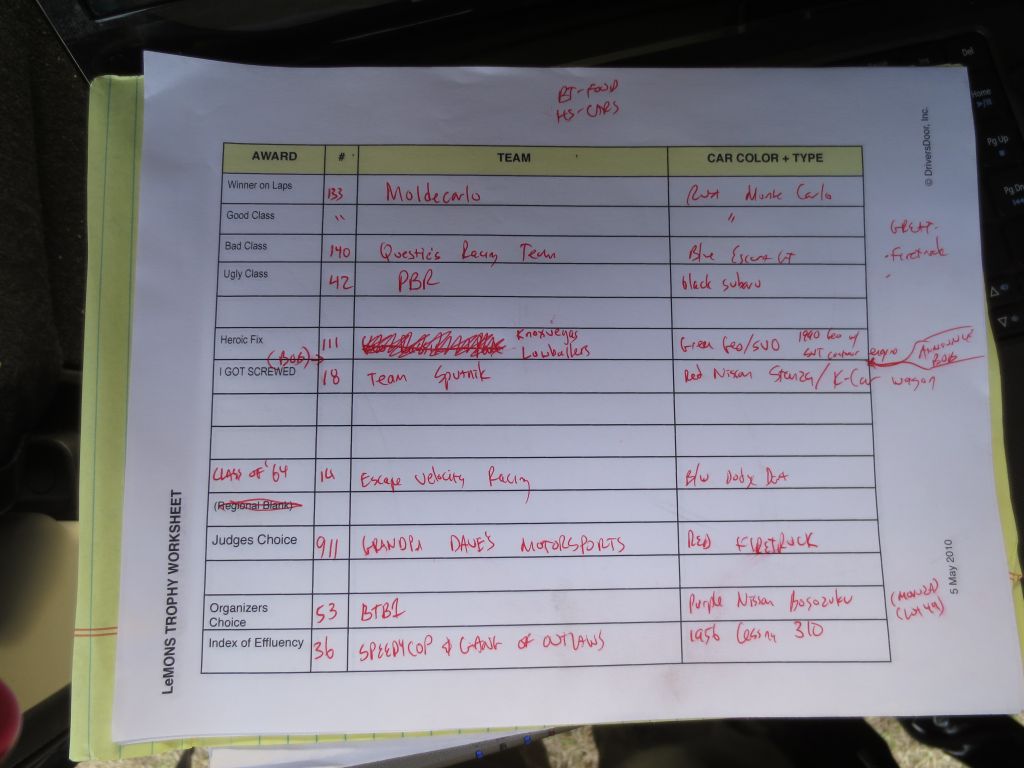 BT-FOOD
HS-CARS
© DriversDoor, Inc.
AWARD # TEAM CAR COLOR + TYPE
Winner on Laps 133 Moldecarlo Rust Monte Carlo
Good Class " "
GREAT-
Bad Class 140 Questie's Racing Team Blue Escort GT
-Firetruck
Ugly Class 42 PBR black subaru
-
Heroic Fix 111 Knoxvegas Lowballers Green Geo/SVO 1990 Geo w/
engine
ANNOUNCE
BOB
(BOB)→
I GOT SCREWED 18 Team Sputnik Red Nissan Stanza/K-Car wagon
CLASS OF '64 14 Escape Velocity Racing B/W Dodge Dart
(Regional Blank)
Judges Choice 911 GRANDPA DAVE'S MOTORSPORTS RED FIRETRUCK
Organizers Choice 53 BTB1 Purple Nissan Bosozuku
Index of Effluency 36 SPEEDYCOP & GANG OF OUTLAWS 1956 Cessna 310
LeMONS TROPHY WORKSHEET
5 May 2010